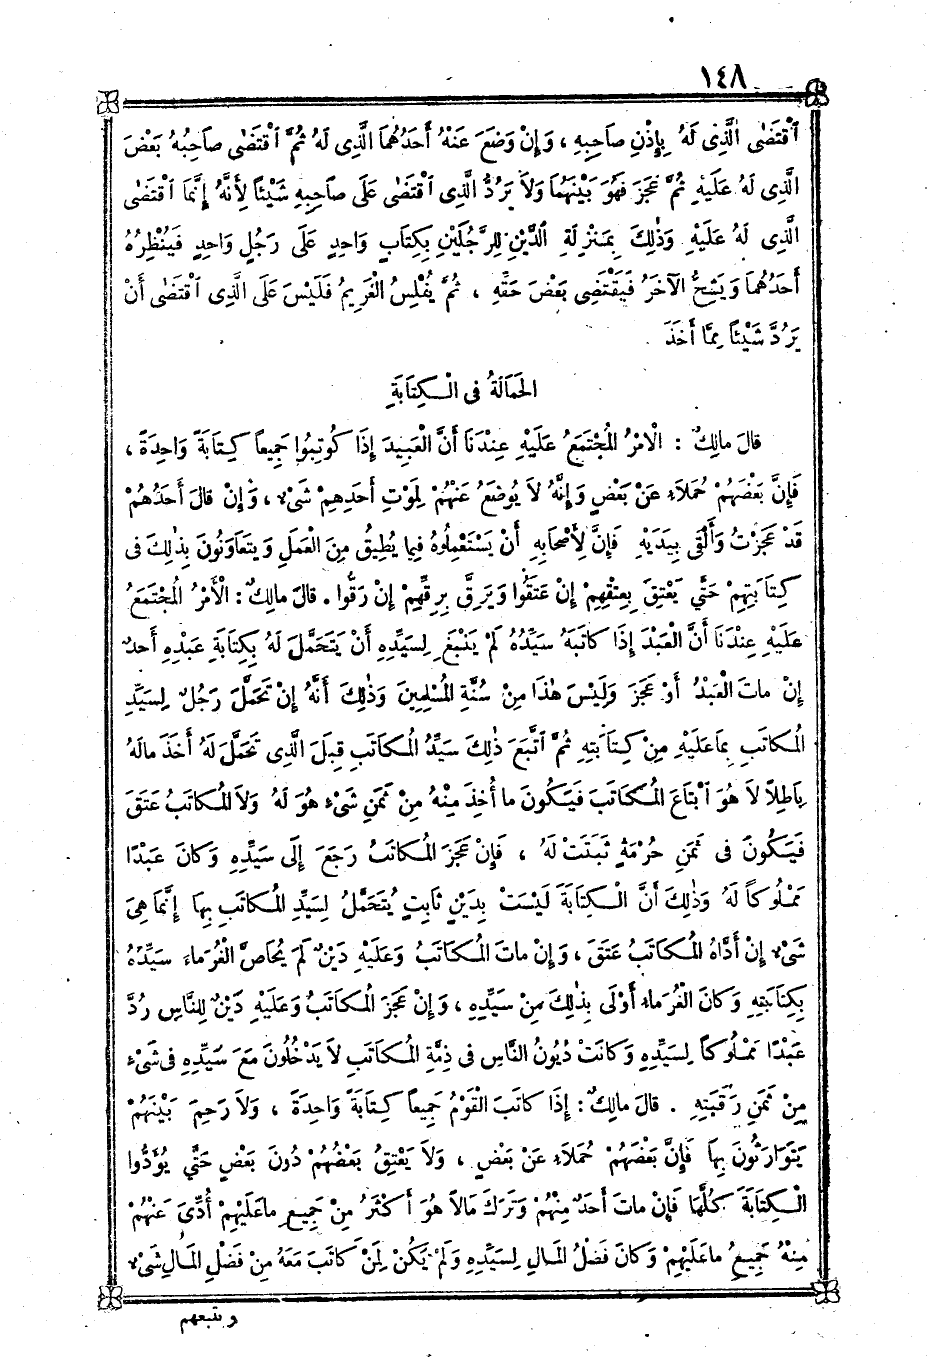 ١٤٨
ٱقْتَضَى ٱلَّذِى لَهُ بِإِذْنِ صَاحِبِهِ ، وَإِنْ وَضَعَ عَنْهُ أَحَدُهُمَا الَّذِى لَهُ ثُمَّ ٱقْتَضَى صَاحِبُهُ بَعْضَ
الَّذِى لَهُ عَلَيْهِ ثُمَّ عَجَزَ فَهُوَ بَيْنَهُمَا وَلاَ يَرُدُّ الَّذِى ٱقْتَضَى عَلَى صَاحِبِهِ شَيْئاً لِأَنَّهُ إِنَّمَا ٱقْتَضَى
الَّذِى لَهُ عَلَيْهِ وَذٰلِكَ بِمَنْزِلَةِ ٱلدَّيْنِ لِلرَّجُلَيْنِ بِكِتَابٍ وَاحِدٍ عَلَى رَجُلٍ وَاحِدٍ فَيُنْظِرُهُ
أَحَدُهُمَا وَيَشِحُّ الآخَرُ فَيَقْتَضِى بَعْضَ حَقِّهِ ، ثُمَّ يُفْلِسُ الْغَرِيمُ فَلَيْسَ عَلَى الَّذِى ٱقْتَضَى أَنْ
يَرُدَّ شَيْئاً مِمَّا أَخَذَ .
الْحَمَالَةُ فِى الْكِتَابَةِ
قَالَ مَالِكٌ : الْأَمْرُ الْمُجْتَمَعُ عَلَيْهِ عِنْدَنَا أَنَّ الْعَبِيدَ إِذَا كُوتِبُوا جَمِيعاً كِتَابَةً وَاحِدَةً ،
فَإِنَّ بَعْضَهُمْ حُمَلاَءُ عَنْ بَعْضٍ وَإِنَّهُ لاَ يُوضَعُ عَنْهُمْ لِمَوْتِ أَحَدِهِمْ شَىْءٌ ، وَإِنْ قَالَ أَحَدُهُمْ
قَدْ عَجَزْتُ وَأَلْقَى بِيَدَيْهِ فَإِنَّ لِأَصْحَابِهِ أَنْ يَسْتَعْمِلُوهُ فِيمَا يُطِيقُ مِنَ الْعَمَلِ وَيَتَعَاوَنُونَ بِذٰلِكَ فِى
كِتَابَتِهِمْ حَتَّى يَعْتِقَ بِعِتْقِهِمْ إِنْ عَتَقُوا وَيَرِقَّ بِرِقِّهِمْ إِنْ رَقُّوا . قَالَ مَالِكٌ : الْأَمْرُ الْمُجْتَمَعُ
عَلَيْهِ عِنْدَنَا أَنَّ الْعَبْدَ إِذَا كَاتَبَهُ سَيِّدُهُ لَمْ يَنْبَغِ لِسَيِّدِهِ أَنْ يَتَحَمَّلَ لَهُ بِكِتَابَةِ عَبْدِهِ أَحَدٌ
إِنْ مَاتَ الْعَبْدُ أَوْ عَجَزَ وَلَيْسَ هٰذَا مِنْ سُنَّةِ الْمُسْلِمِينَ وَذٰلِكَ أَنَّهُ إِنْ تَحَمَّلَ رَجُلٌ لِسَيِّدِ
الْمُكَاتَبِ بِمَا عَلَيْهِ مِنْ كِتَابَتِهِ ثُمَّ ٱتَّبَعَ ذٰلِكَ سَيِّدُ الْمُكَاتَبِ قِبَلَ الَّذِى تَحَمَّلَ لَهُ أَخَذَ مَالَهُ
بَاطِلاً لاَ هُوَ ٱبْتَاعَ الْمُكَاتَبَ فَيَكُونَ مَا أُخِذَ مِنْهُ مِنْ ثَمَنِ شَىْءٍ هُوَ لَهُ وَلاَ الْمُكَاتَبُ عَتَقَ
فَيَكُونَ فِى ثَمَنِ حُرْمَةٍ ثَبَتَتْ لَهُ ، فَإِنْ عَجَزَ الْمُكَاتَبُ رَجَعَ إِلَى سَيِّدِهِ وَكَانَ عَبْدًا
مَمْلُوكاً لَهُ وَذٰلِكَ أَنَّ الْكِتَابَةَ لَيْسَتْ بِدَيْنٍ ثَابِتٍ يُتَحَمَّلُ لِسَيِّدِ الْمُكَاتَبِ بِهَا إِنَّمَا هِىَ
شَىْءٌ إِنْ أَدَّاهُ الْمُكَاتَبُ عَتَقَ ، وَإِنْ مَاتَ الْمُكَاتَبُ وَعَلَيْهِ دَيْنٌ لَمْ يُحَاصَّ الْغُرَمَاءَ سَيِّدُهُ
بِكِتَابَتِهِ وَكَانَ الْغُرَمَاءُ أَوْلَى بِذٰلِكَ مِنْ سَيِّدِهِ ، وَإِنْ عَجَزَ الْمُكَاتَبُ وَعَلَيْهِ دَيْنٌ لِلنَّاسِ رُدَّ
عَبْدًا مَمْلُوكاً لِسَيِّدِهِ وَكَانَتْ دُيُونُ النَّاسِ فِى ذِمَّةِ الْمُكَاتَبِ لاَ يَدْخُلُونَ مَعَ سَيِّدِهِ فِى شَىْءٍ
مِنْ ثَمَنِ رَقَبَتِهِ . قَالَ مَالِكٌ : إِذَا كَاتَبَ الْقَوْمُ جَمِيعاً كِتَابَةً وَاحِدَةً ، وَلاَ رَحِمَ بَيْنَهُمْ
يَتَوَارَثُونَ بِهَا فَإِنَّ بَعْضَهُمْ حُمَلاَءُ عَنْ بَعْضٍ ، وَلاَ يَعْتِقُ بَعْضُهُمْ دُونَ بَعْضٍ حَتَّى يُؤَدُّوا
الْكِتَابَةَ كُلَّهَا فَإِنْ مَاتَ أَحَدٌ مِنْهُمْ وَتَرَكَ مَالاً هُوَ أَكْثَرُ مِنْ جَمِيعِ مَا عَلَيْهِمْ أُدِّىَ عَنْهُمْ
مِنْهُ جَمِيعُ مَا عَلَيْهِمْ وَكَانَ فَضْلُ الْمَالِ لِسَيِّدِهِ وَلَمْ يَكُنْ لِمَنْ كَاتَبَ مَعَهُ مِنْ فَضْلِ الْمَالِ شَىْءٌ
ويتبعهم